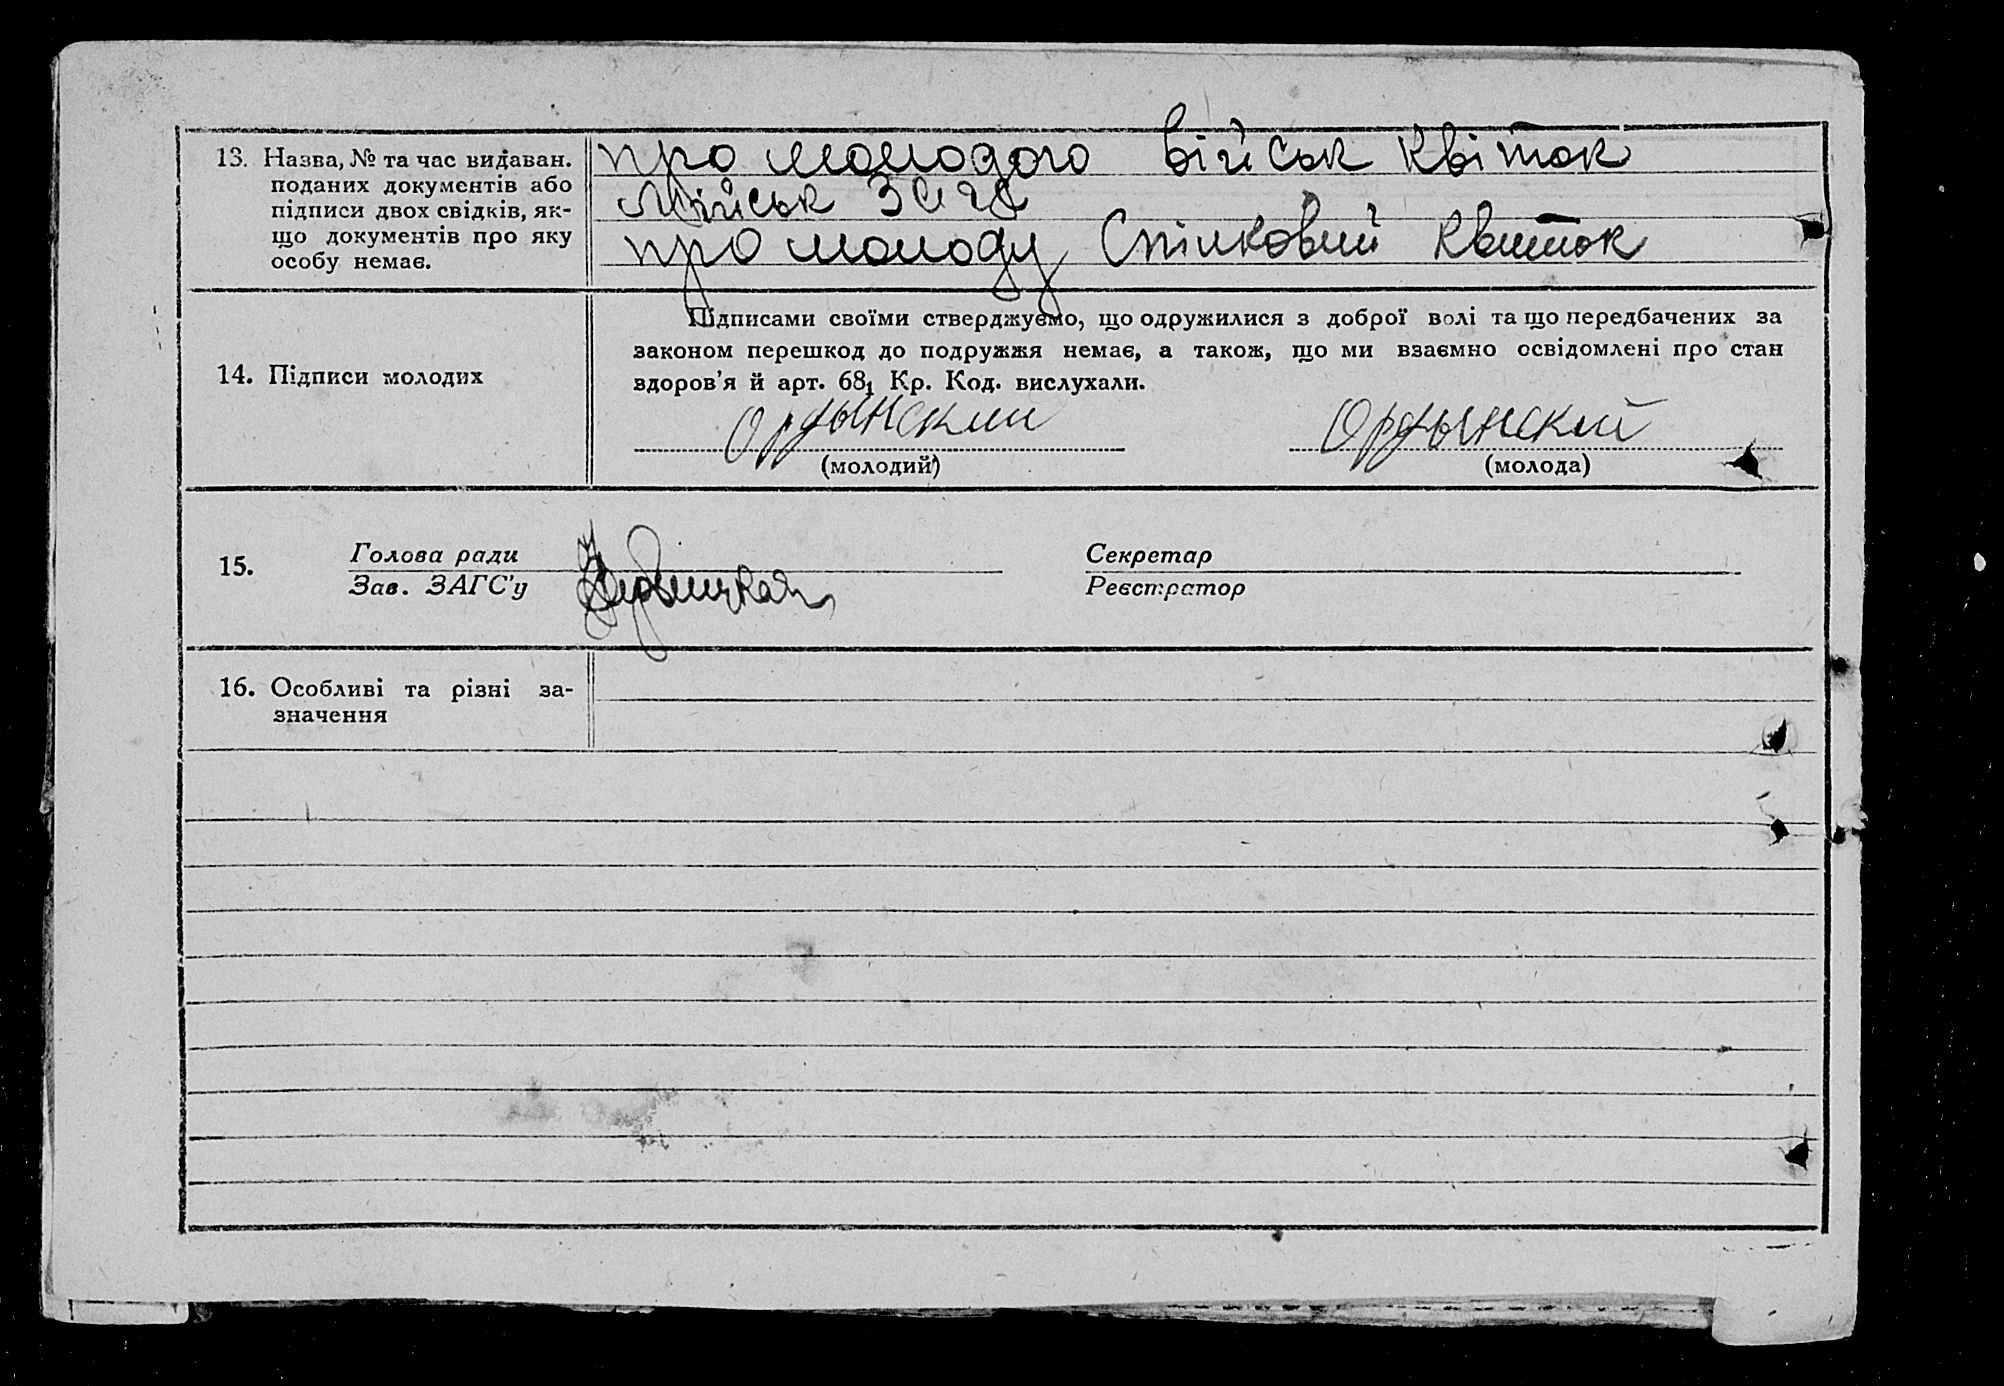 13. Назва, № та час видаван.
поданих документів або
підписи двох свідків, як-
що документів про яку
особу немає.
про молодого військ квіток
військ ЗАГС
про молоду Спілковий квиток
14. Підписи молодих
Підписами своїми стверджуємо, що одружилися з доброї волі та що передбачених за
законом перешкод до подружжя немає, а також, що ми взаємно освідомлені про стан
здоров'я й арт. 68₁ Кр. Код. вислухали.
Ордынский Ордынский
(молодий) (молода)
15. Голова ради
Зав. ЗАГС'у
Секретар
Реєстратор
16. Особливі та різні за-
значення